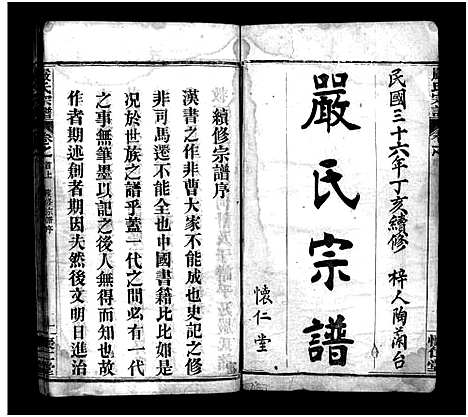 民國三十六年丁亥續修 梓人陶蘭台
嚴氏宗譜
懷仁堂
續修宗譜序
漢書之作非曹大家不能成也史記之修
非司馬遷不能全也中國書籍比比如是
况於世族之譜乎蓋一代之間必有一代
之事無筆墨以記之後人無得而知也故
作者期述創者期因夫然後文明日進治
嚴氏宗譜